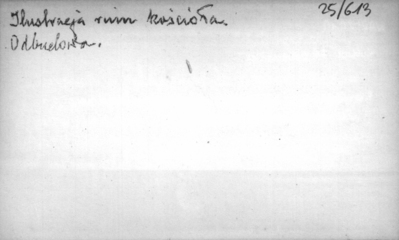 Ilustracja ruin kościoła.
25/613
Odbudowa.